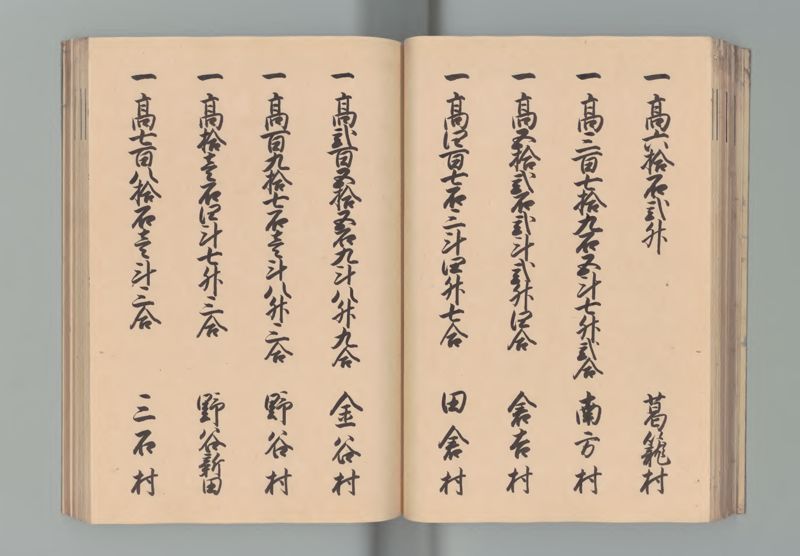 一高六拾石弐升 葛籠村
一高二百七拾九石五斗七升弐合 南方村
一高五拾弐石弐斗弐升四合 倉吉村
一高四百七石二斗四升七合 田倉村
一高弐百五拾五石九斗八升九合 金谷村
一高百九拾七石壱斗八升二合 野谷村
一高拾壱石四斗七升三合 野谷新田
一高七百八拾石壱斗二合 三石村